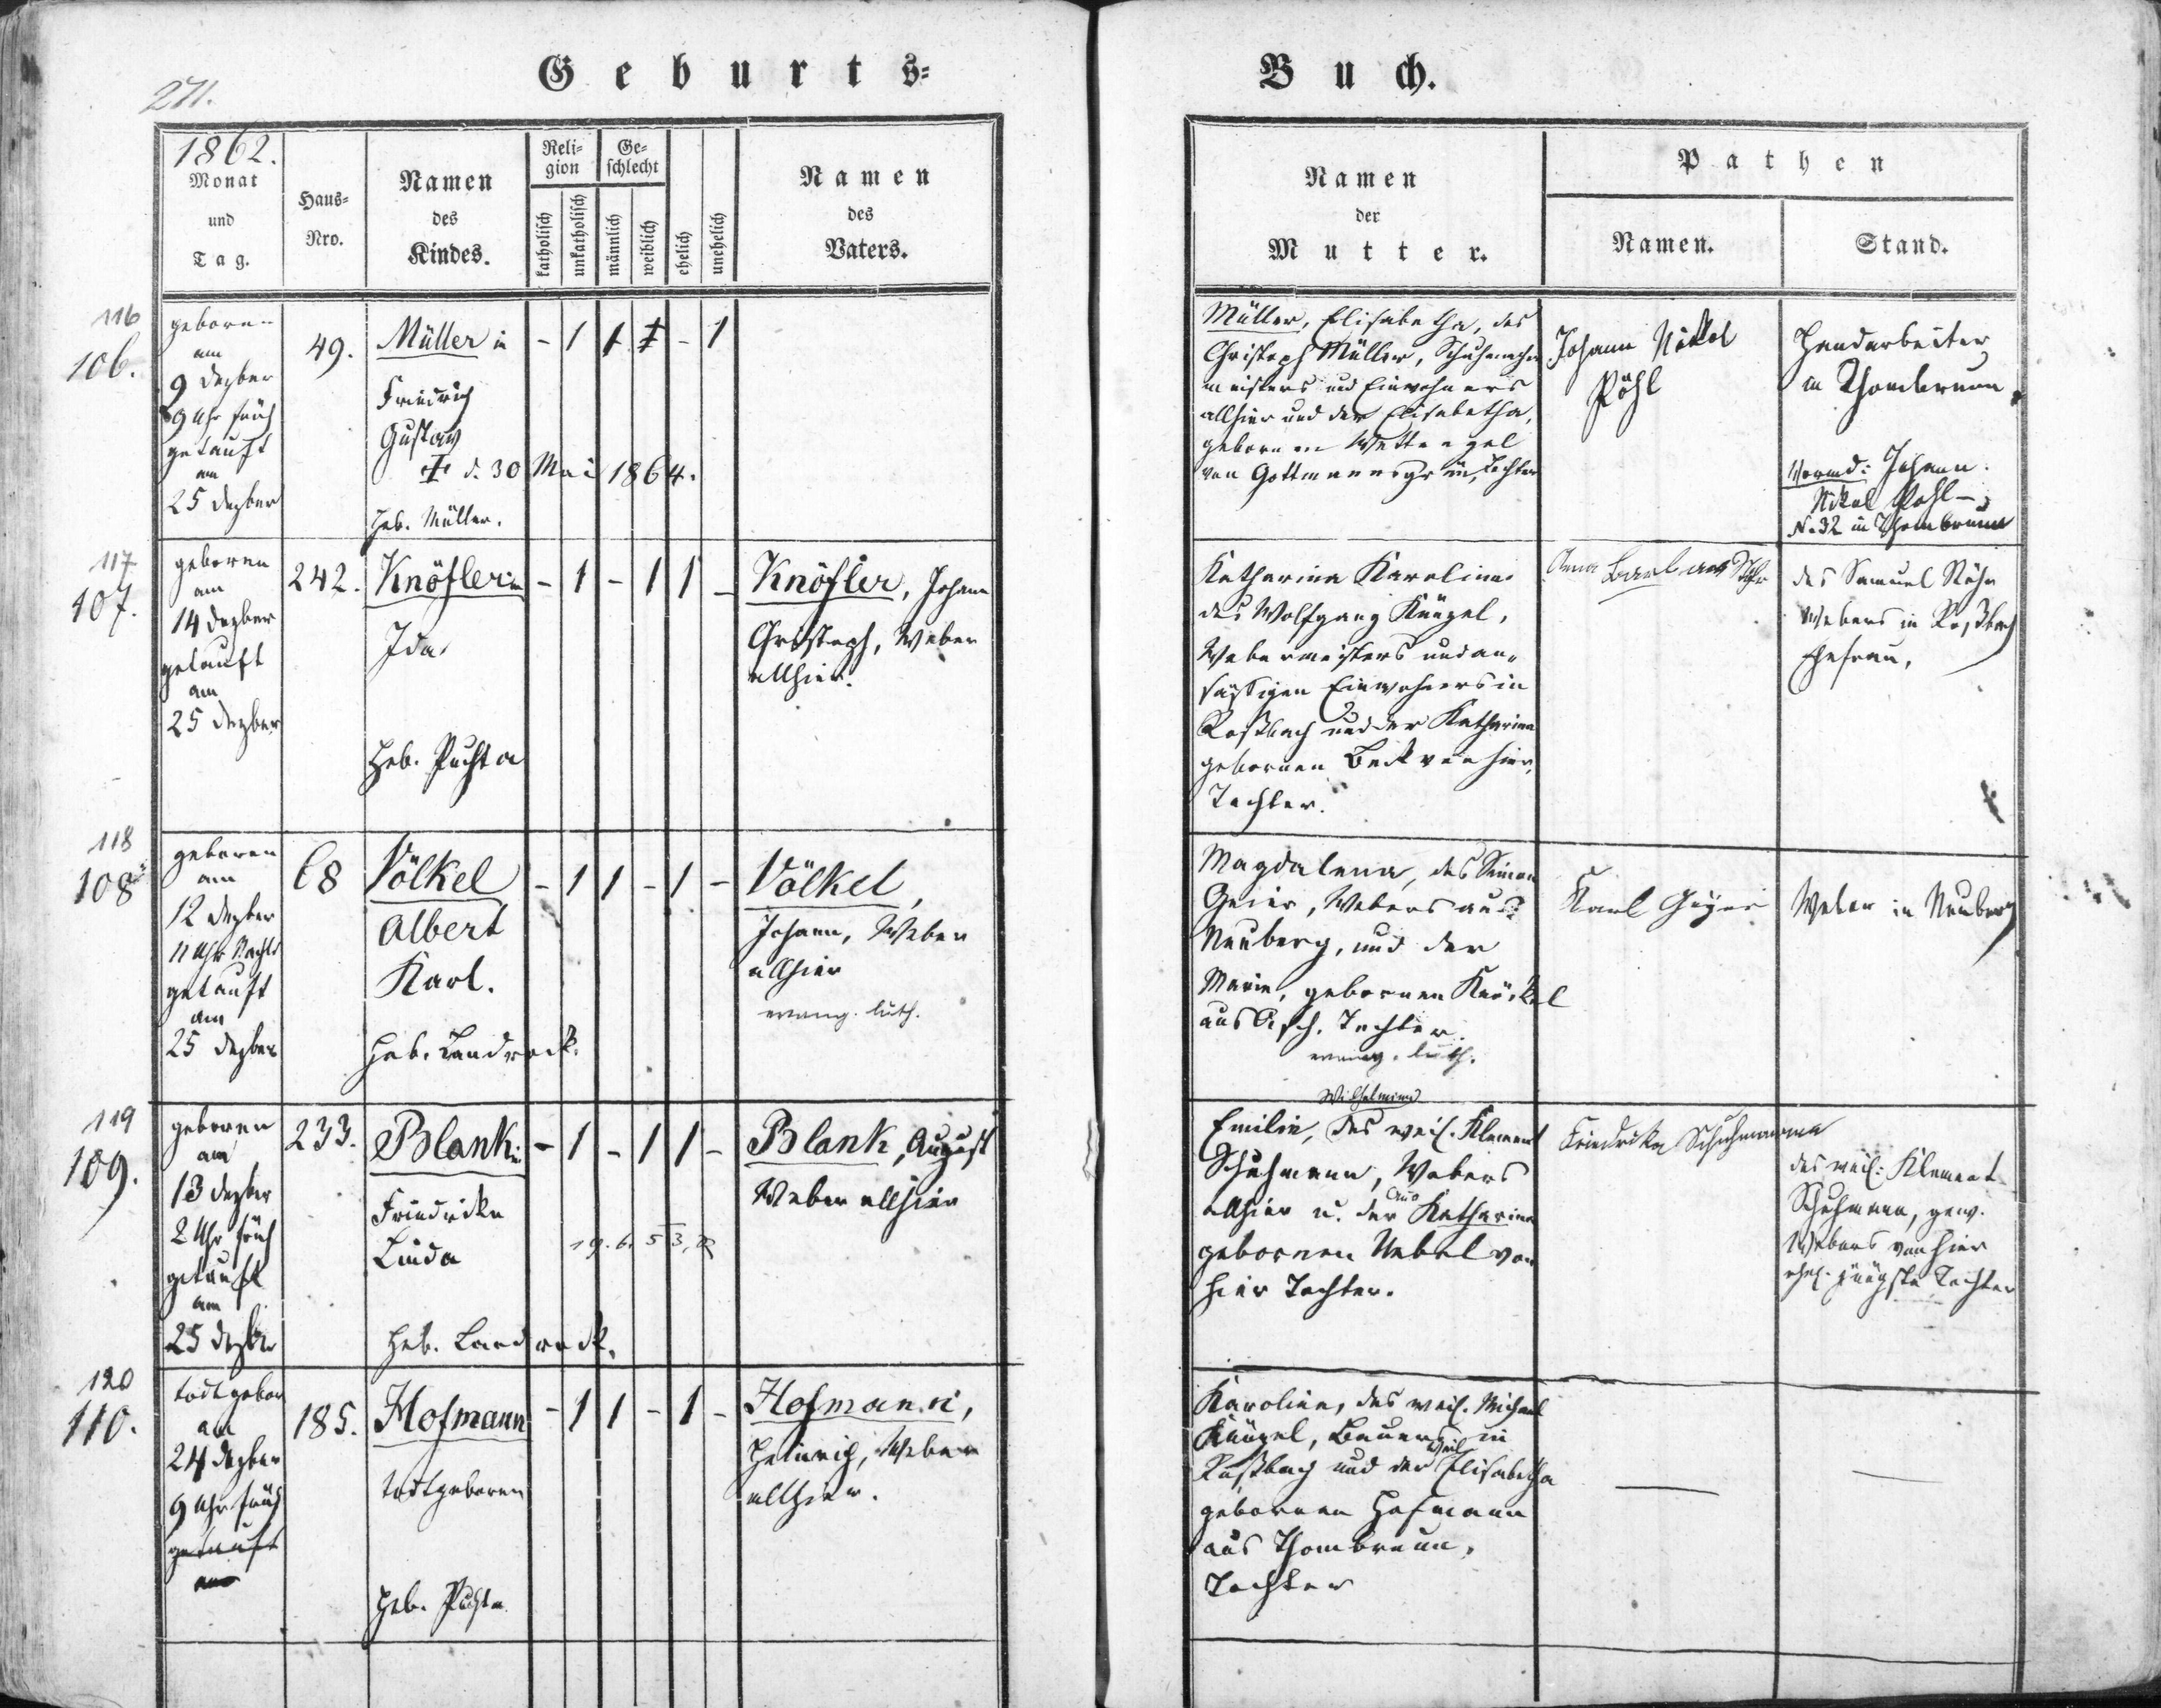 271.
Geburts=
Buch.
1862.
Monat
und
Tag.
Haus=
Nro.
Namen
des
Kindes.
Reli=
gion
katholisch
unkatholisch
Ge=
schlecht
männlich
weiblich
ehelich
unehelich
Namen
des
Vaters.
Namen
der
Mutter.
Pathen
Namen.
Stand.
116
106.
geboren
am
9 Dezber
9 Uhr früh
getauft
am
25 Dezber
49.
Müller in
Friedrich
Gustav
† d. 30 Mai 1864.
Heb. Müller.
- 1 1 - 1
Müller, Elisabetha, des
Christoph Müller, Schuhmacher
meisters und Einwohners
allhier und der Elisabetha,
gebornen Wettengel
von Gottmannsgrün, Tochter
Johann Nikol
Pöhl
Handarbeiter
in Thonbrunn
Vormd: Johann
Nikol Pöhl
N. 32 in Thonbrunn
117
107.
geboren
am
14 Dezber
getauft
am
25 Dezber
242.
Knöfler in
Ida
Heb. Puchta
- 1 - 1 1 -
Knöfler, Johann
Christoph, Weber
allhier.
Katharina Karolina
des Wolfgang Künzel,
Webermeisters und an-
säßigen Einwohners in
Roßbach und der Katharina
gebornen Beck von hier,
Tochter.
Anna Barbara
des Samuel
Webers in Roßbach
Ehefrau,
118
108
geboren
am
12 Dezber
11 Uhr Nachts
getauft
am
25 Dezber
68
Völkel
Albert
Karl.
Heb. Landrock.
- 1 1 - 1 -
Völkel,
Johann, Weber
allhier
evang. luth.
Magdalena, des Simon
Geier, Webers aus
Neuberg, und der
Marie, gebornen
aus Asch, Tochter
evang. luth.
Karl Geyer
Weber in Neuberg
119
109.
geboren
am
13 Dezber
2 Uhr früh
getauft
am
25 Dezbr
233.
Blank in
Friedrike
Linda
Heb. Landrock.
- 1 - 1 1 -
19. 6. 53,
Blank, August
Weber allhier
Wilhelmine
Emilie, des weil. Klement
Schuhmann, Webers
allhier u. der Katharina
gebornen Uebel von
hier Tochter.
Friedrika Schuhmann
des weil: Klement
Schuhmann, gew.
Webers von hier
ehel. jüngste Tochter
120
110.
todtgeboren
am
24 Dezber
9 Uhr früh
getauft
am
185.
Hofmann
todtgeboren
Heb. Puchta
- 1 1 - 1 -
Hofmann,
Heinrich, Weber
allhier.
Karoline, des weil. Michael
Künzel, Bauers in
Roßbach und der weil Elisabetha
gebornen Hofmann
aus Thonbrunn,
Tochter